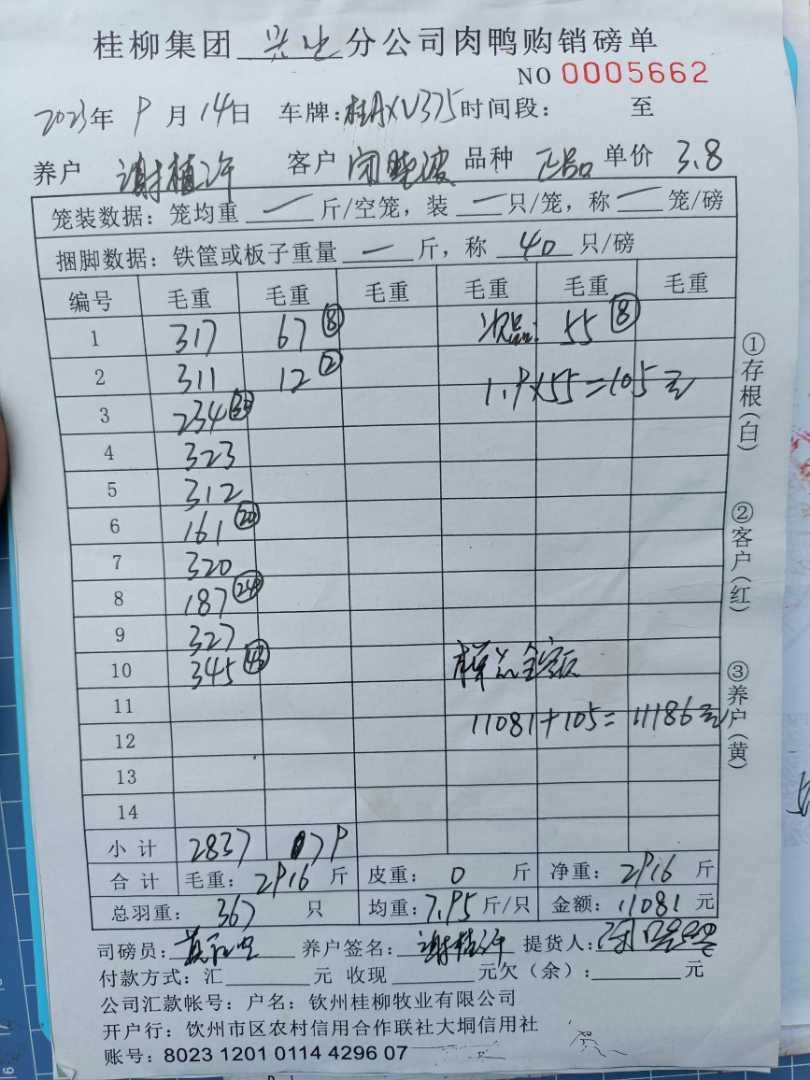 桂柳集团 兴业 分公司肉鸭购销磅单
NO 0005662
2023年 9 月 14日 车牌：桂AXV375 时间段： 至
养户 谢植许 客户 闭 波 品种 正品 单价 3.8
笼装数据：笼均重 — 斤/空笼，装 — 只/笼，称 — 笼/磅
捆脚数据：铁筐或板子重量 — 斤，称 40 只/磅
编号 毛重 毛重 毛重 毛重 毛重 毛重
1 317 67 ⑧ 次品： 55 ⑧
2 311 12 ②
1.9×55=105元
3 234
4 323
5 312
6 161 ⑳
7 320
8 187 ㉔
9 327
10 345 ㊸
样品金额
11
11081+105=11186元
12
13
14
小计 2837 079
合计 毛重：2916 斤 皮重： 0 斤 净重：2916 斤
总羽重： 367 只 均重：7.95 斤/只 金额：11081 元
司磅员： 养户签名：谢植许 提货人：
付款方式：汇 元 收现 元欠（余）： 元
公司汇款帐号：户名：钦州桂柳牧业有限公司
开户行：钦州市区农村信用合作联社大垌信用社
账号：8023 1201 0114 4296 07
①存根（白）
②客户（红）
③养户（黄）